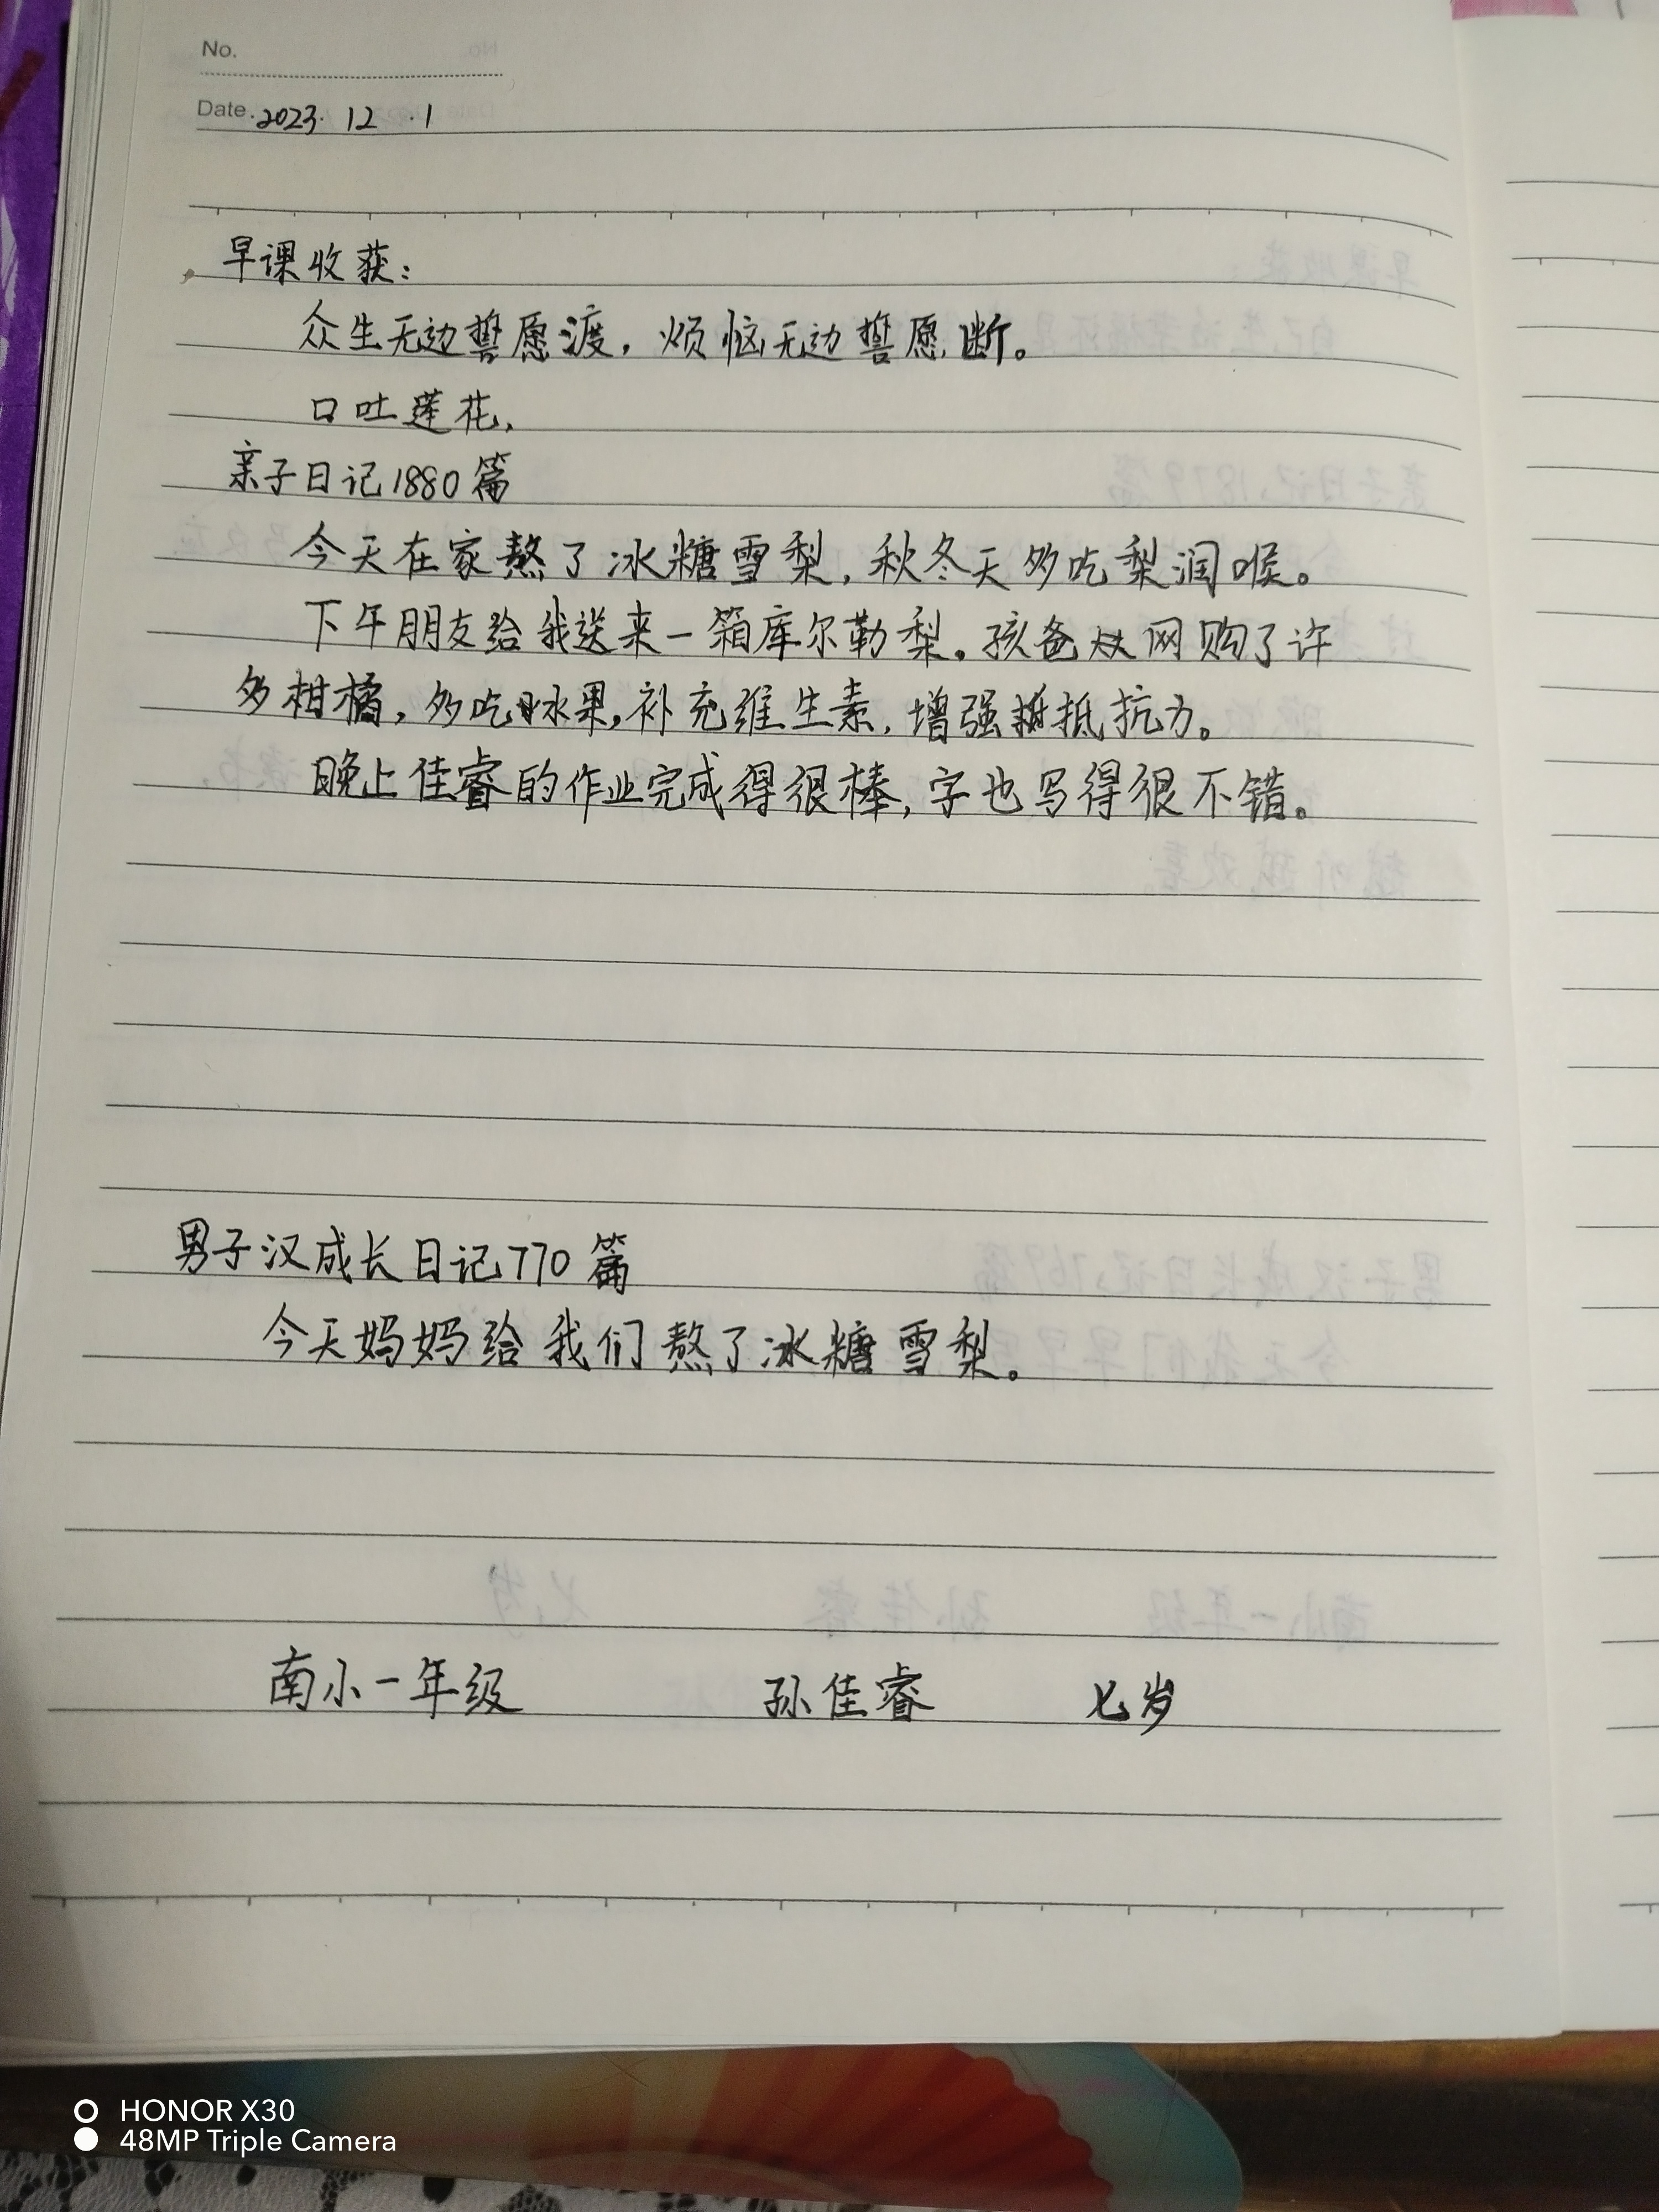 No.
Date. 2023. 12 .1
早课收获：
众生无边誓愿渡，烦恼无边誓愿断。
口吐莲花，
亲子日记1880篇
今天在家熬了冰糖雪梨，秋冬天多吃梨润喉。
下午朋友给我送来一箱库尔勒梨。孩爸从网购了许
多柑橘，多吃水果，补充维生素，增强抵抗力。
晚上佳睿的作业完成得很棒，字也写得很不错。
男子汉成长日记770篇
今天妈妈给我们熬了冰糖雪梨。
南小一年级 孙佳睿 七岁
HONOR X30
48MP Triple Camera